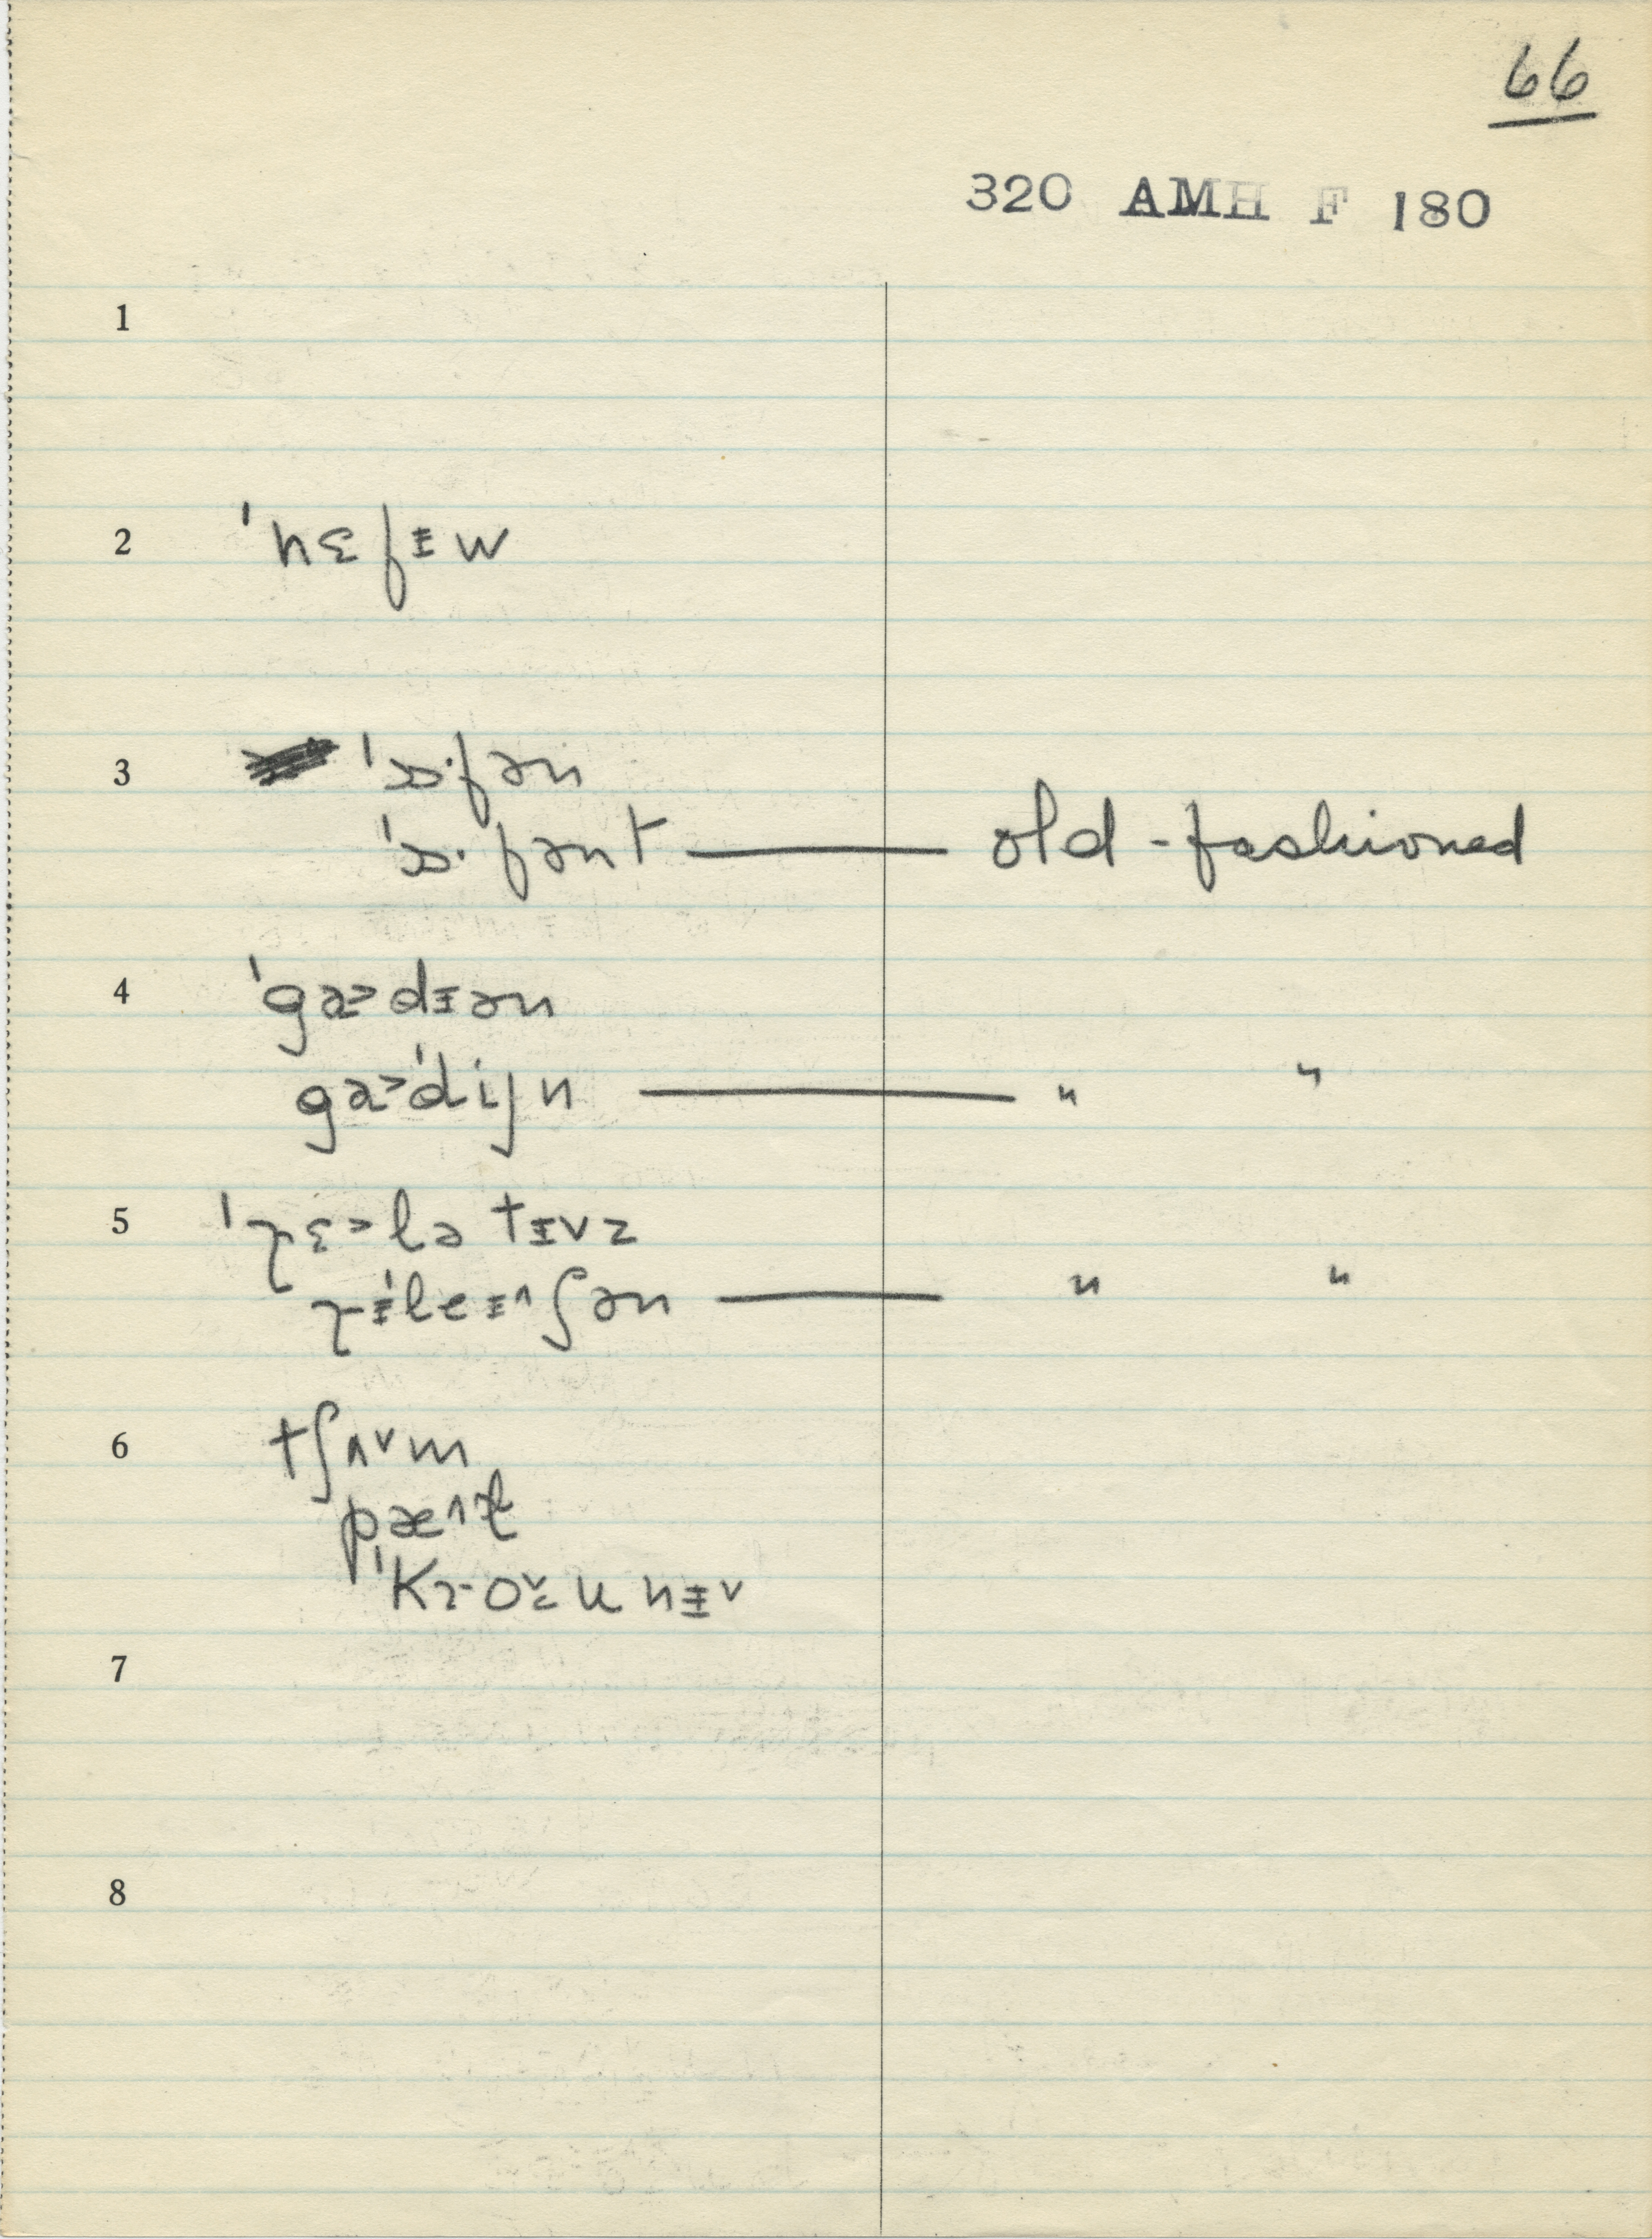 66
320 AMH F 180
1
2 ˈnɛfɪ̵w
3 ˈɔ·fən
ˈɔ·fənt — old-fashioned
4 ˈgɑ˃dɪən
gɑ˃ˈdijn — " "
5 ˈɽɛ˃lətɪvz
ɽɪ̵ˈleɪ˄ʃən — " "
6 tʃʌ˅m
pæ˄t
7
8